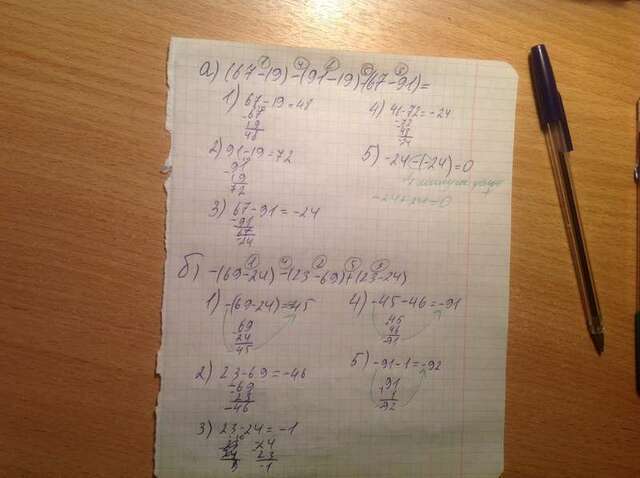 а) (67-19)-(91-19)-(67-91)=
1) 67-19=48
-67
19
48
2) 91-19=72
-91
19
72
3) 67-91=-24
-91
67
-24
4) 48-72=-24
-72
48
24
5) -24-(-24)=0
-24+24=0
б) -(69-24)-(23-69)+(23-24)
1) -(69-24)=-45
-69
24
45
2) 23-69=-46
-69
23
-46
3) 23-24=-1
-24
23
-1
4) -45-46=-91
45
46
-91
5) -91-1=-92
91
1
-92